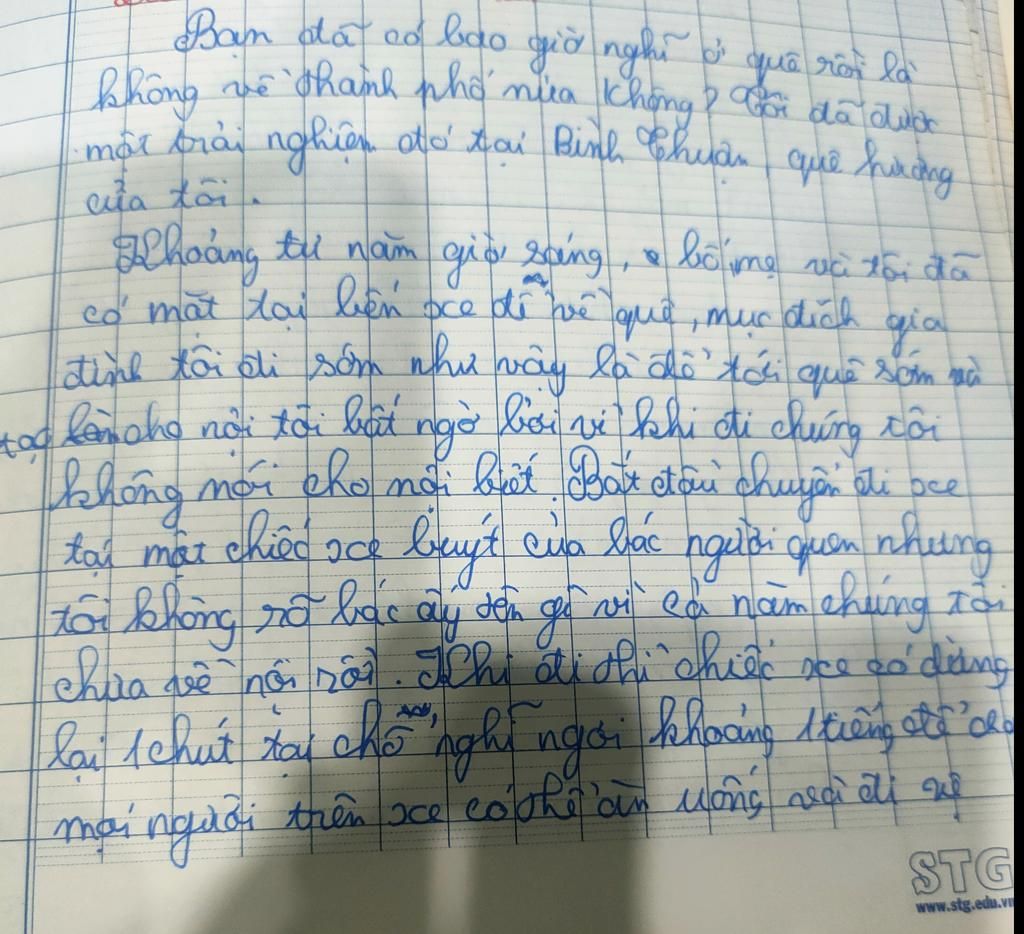 Bạn đã có bao giờ nghĩ ở quê rồi là
không về thành phố nữa không? Tôi đã được
một trải nghiệm đó tại Bình Thuận, quê hương
của tôi.
Khoảng tư năm giờ sáng, bố mẹ và tôi đã
có mặt tại bến xe để về quê, mục đích gia
đình tôi đi sớm như vậy là để tới quê sớm và
tạo cho nội tôi bất ngờ bởi vì khi đi chúng tôi
không mới cho nội biết. Bắt đầu chuyến đi xe
tại một chiếc xe buýt của bác người quen nhưng
tôi không rõ bác ấy tên gì vì cả năm chúng tôi
chưa về nội rồi. Khi đi thì chiếc xe có dừng
lại 1 chút tại chỗ nghỉ ngơi khoảng 1 tiếng để cho
mọi người trên xe có thể ăn uống và đi vệ
STG
www.stg.edu.vn